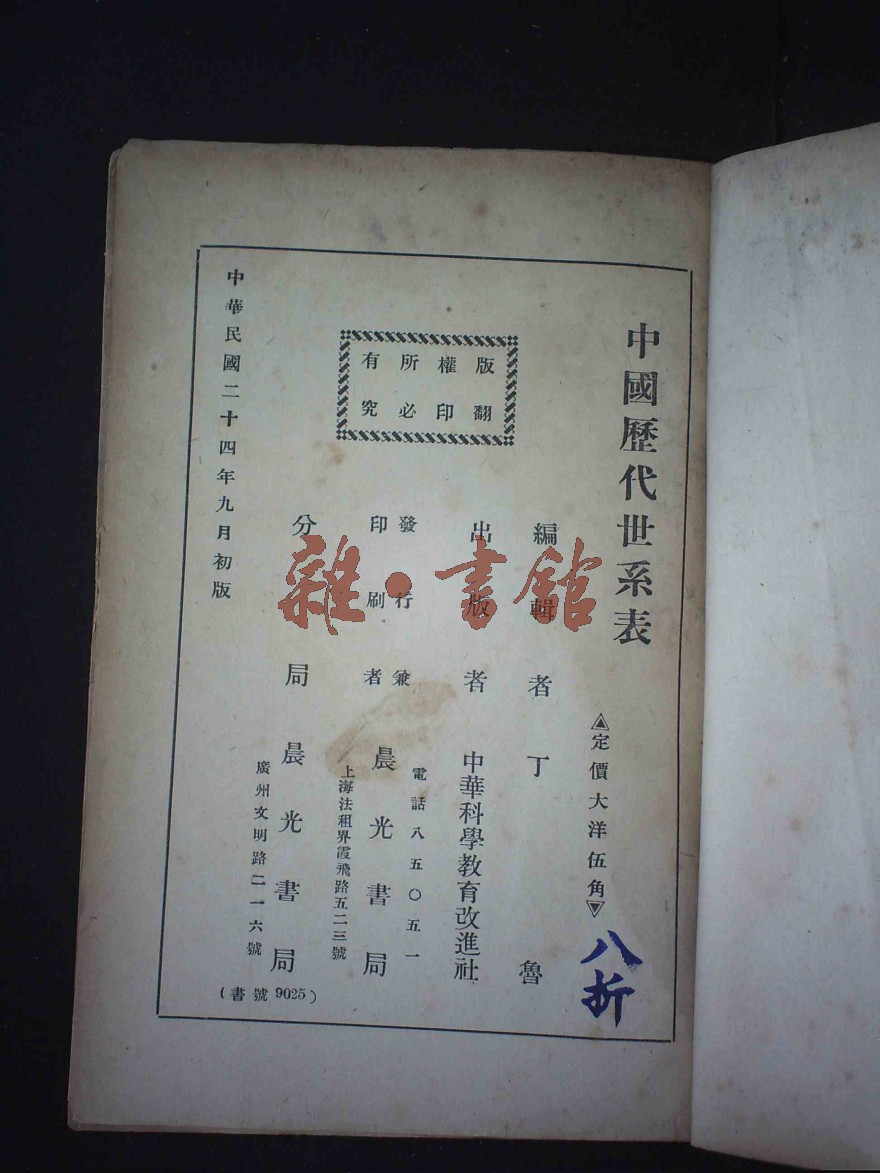 中國歷代世系表
定價大洋伍角
八折
編輯者丁魯
出版者中華科學教育改進社
發行兼
印刷者晨光書局
電話八五〇五一
上海法租界霞飛路五二三號
分局晨光書局
廣州文明路二一六號
版權所有
翻印必究
中華民國二十四年九月初版
(書號9025)
雜·書館